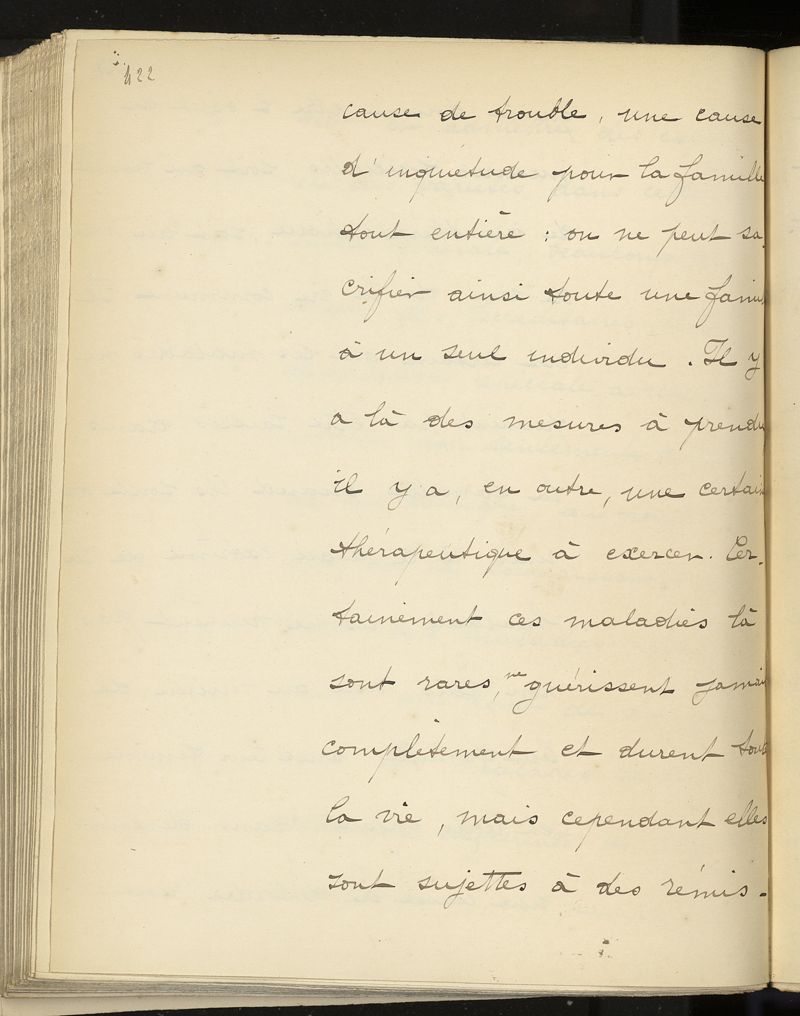 422
cause de trouble, une cause
d'inquiétude pour la famille
tout entière : on ne peut sa-
crifier ainsi toute une famil
à un seul individu. Il y
a là des mesures à prendre
il y a, en outre, une certain
thérapeutique à exercer. Cer-
tainement ces maladies là
sont rares, ne guérissent jamais
complètement et durent toute
la vie, mais cependant elles
sont sujettes à des rémis-